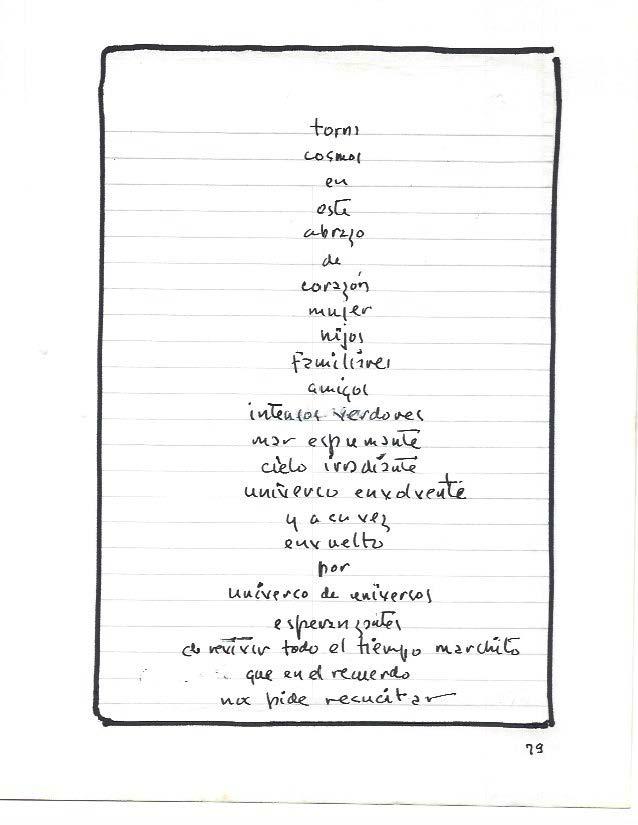 torni
cosmos
en
este
abrazo
de
corazón
mujer
hijos
familiares
amigos
intensos verdores
mar espumante
cielo irradiante
universo envolvente
y a su vez
envuelto
por
universo de universos
esperanzantes
de revivir todo el tiempo marchito
que en el recuerdo
nos pide resucitar
79